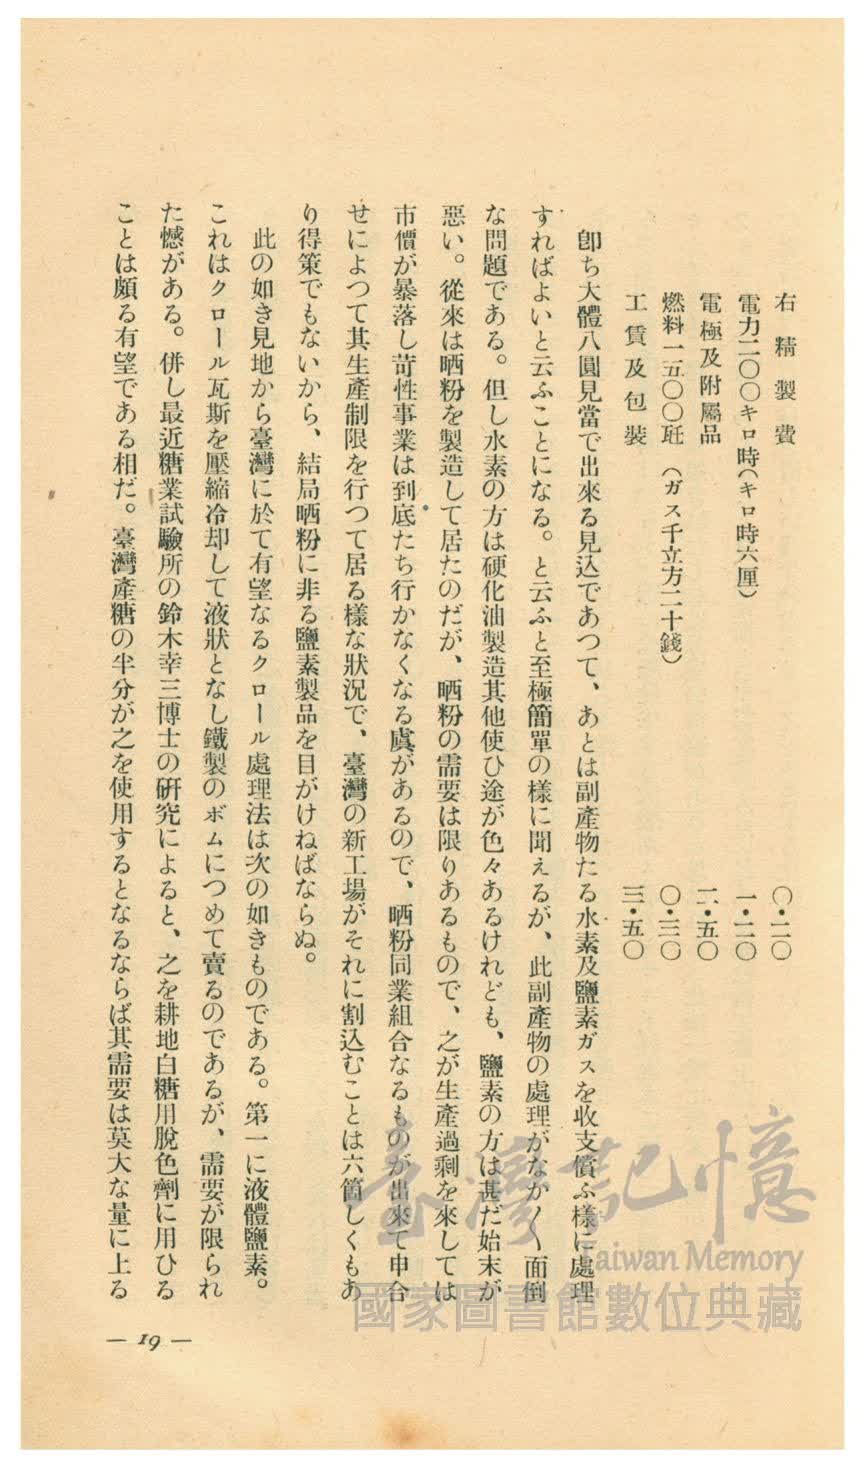 右精製費　〇・二〇
電力二〇〇キロ時(キロ時六厘)　一・二〇
電極及附屬品　二・五〇
燃料一五〇〇瓩(ガス千立方二十錢)　〇・三〇
工賃及包裝　三・五〇
卽ち大體八圓見當で出來る見込であつて、あとは副產物たる水素及鹽素ガスを收支償ふ樣に處理
すればよいと云ふことになる。と云ふと至極簡單の樣に聞えるが、此副產物の處理がなか〱面倒
な問題である。但し水素の方は硬化油製造其他使ひ途が色々あるけれども、鹽素の方は甚だ始末が
惡い。從來は晒粉を製造して居たのだが、晒粉の需要は限りあるもので、之が生產過剩を來しては
市價が暴落し苛性事業は到底たち行かなくなる虞があるので、晒粉同業組合なるものが出來て申合
せによつて其生產制限を行つて居る樣な狀況で、臺灣の新工場がそれに割込むことは六箇しくもあ
り得策でもないから、結局晒粉に非る鹽素製品を目がけねばならぬ。
此の如き見地から臺灣に於て有望なるクロール處理法は次の如きものである。第一に液體鹽素。
これはクロール瓦斯を壓縮冷却して液狀となし鐵製のボムにつめて賣るのであるが、需要が限られ
た憾がある。併し最近糖業試驗所の鈴木幸三博士の硏究によると、之を耕地白糖用脫色劑に用ひる
ことは頗る有望である相だ。臺灣產糖の半分が之を使用するとなるならば其需要は莫大な量に上る
— 19 —
臺灣記憶
Taiwan Memory
國家圖書館數位典藏